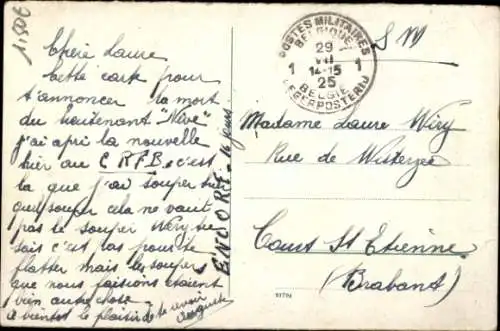 11506
Chère Laure
Cette carte pour
t'annoncer la mort
du lieutenant "Nève"
j'ai apri la nouvelle
hier au C R P B. c'est
la que j'ai souper
quel souper cela ne vaut
pas le souper Wéry tu
sais c'est pas pour te
flatter mais les souper
que nous faisions étaient
bien autre chose
a bientôt le plaisir de te revoir
ENCORE 16 jours
POSTES MILITAIRES
BELGIQUE
29
VII
1 14-15 1
25
BELGIË
LEGERPOSTERIJ
S M
Madame Laure Wéry
Rue de Wisterzee
Court St Etienne
(Brabant)